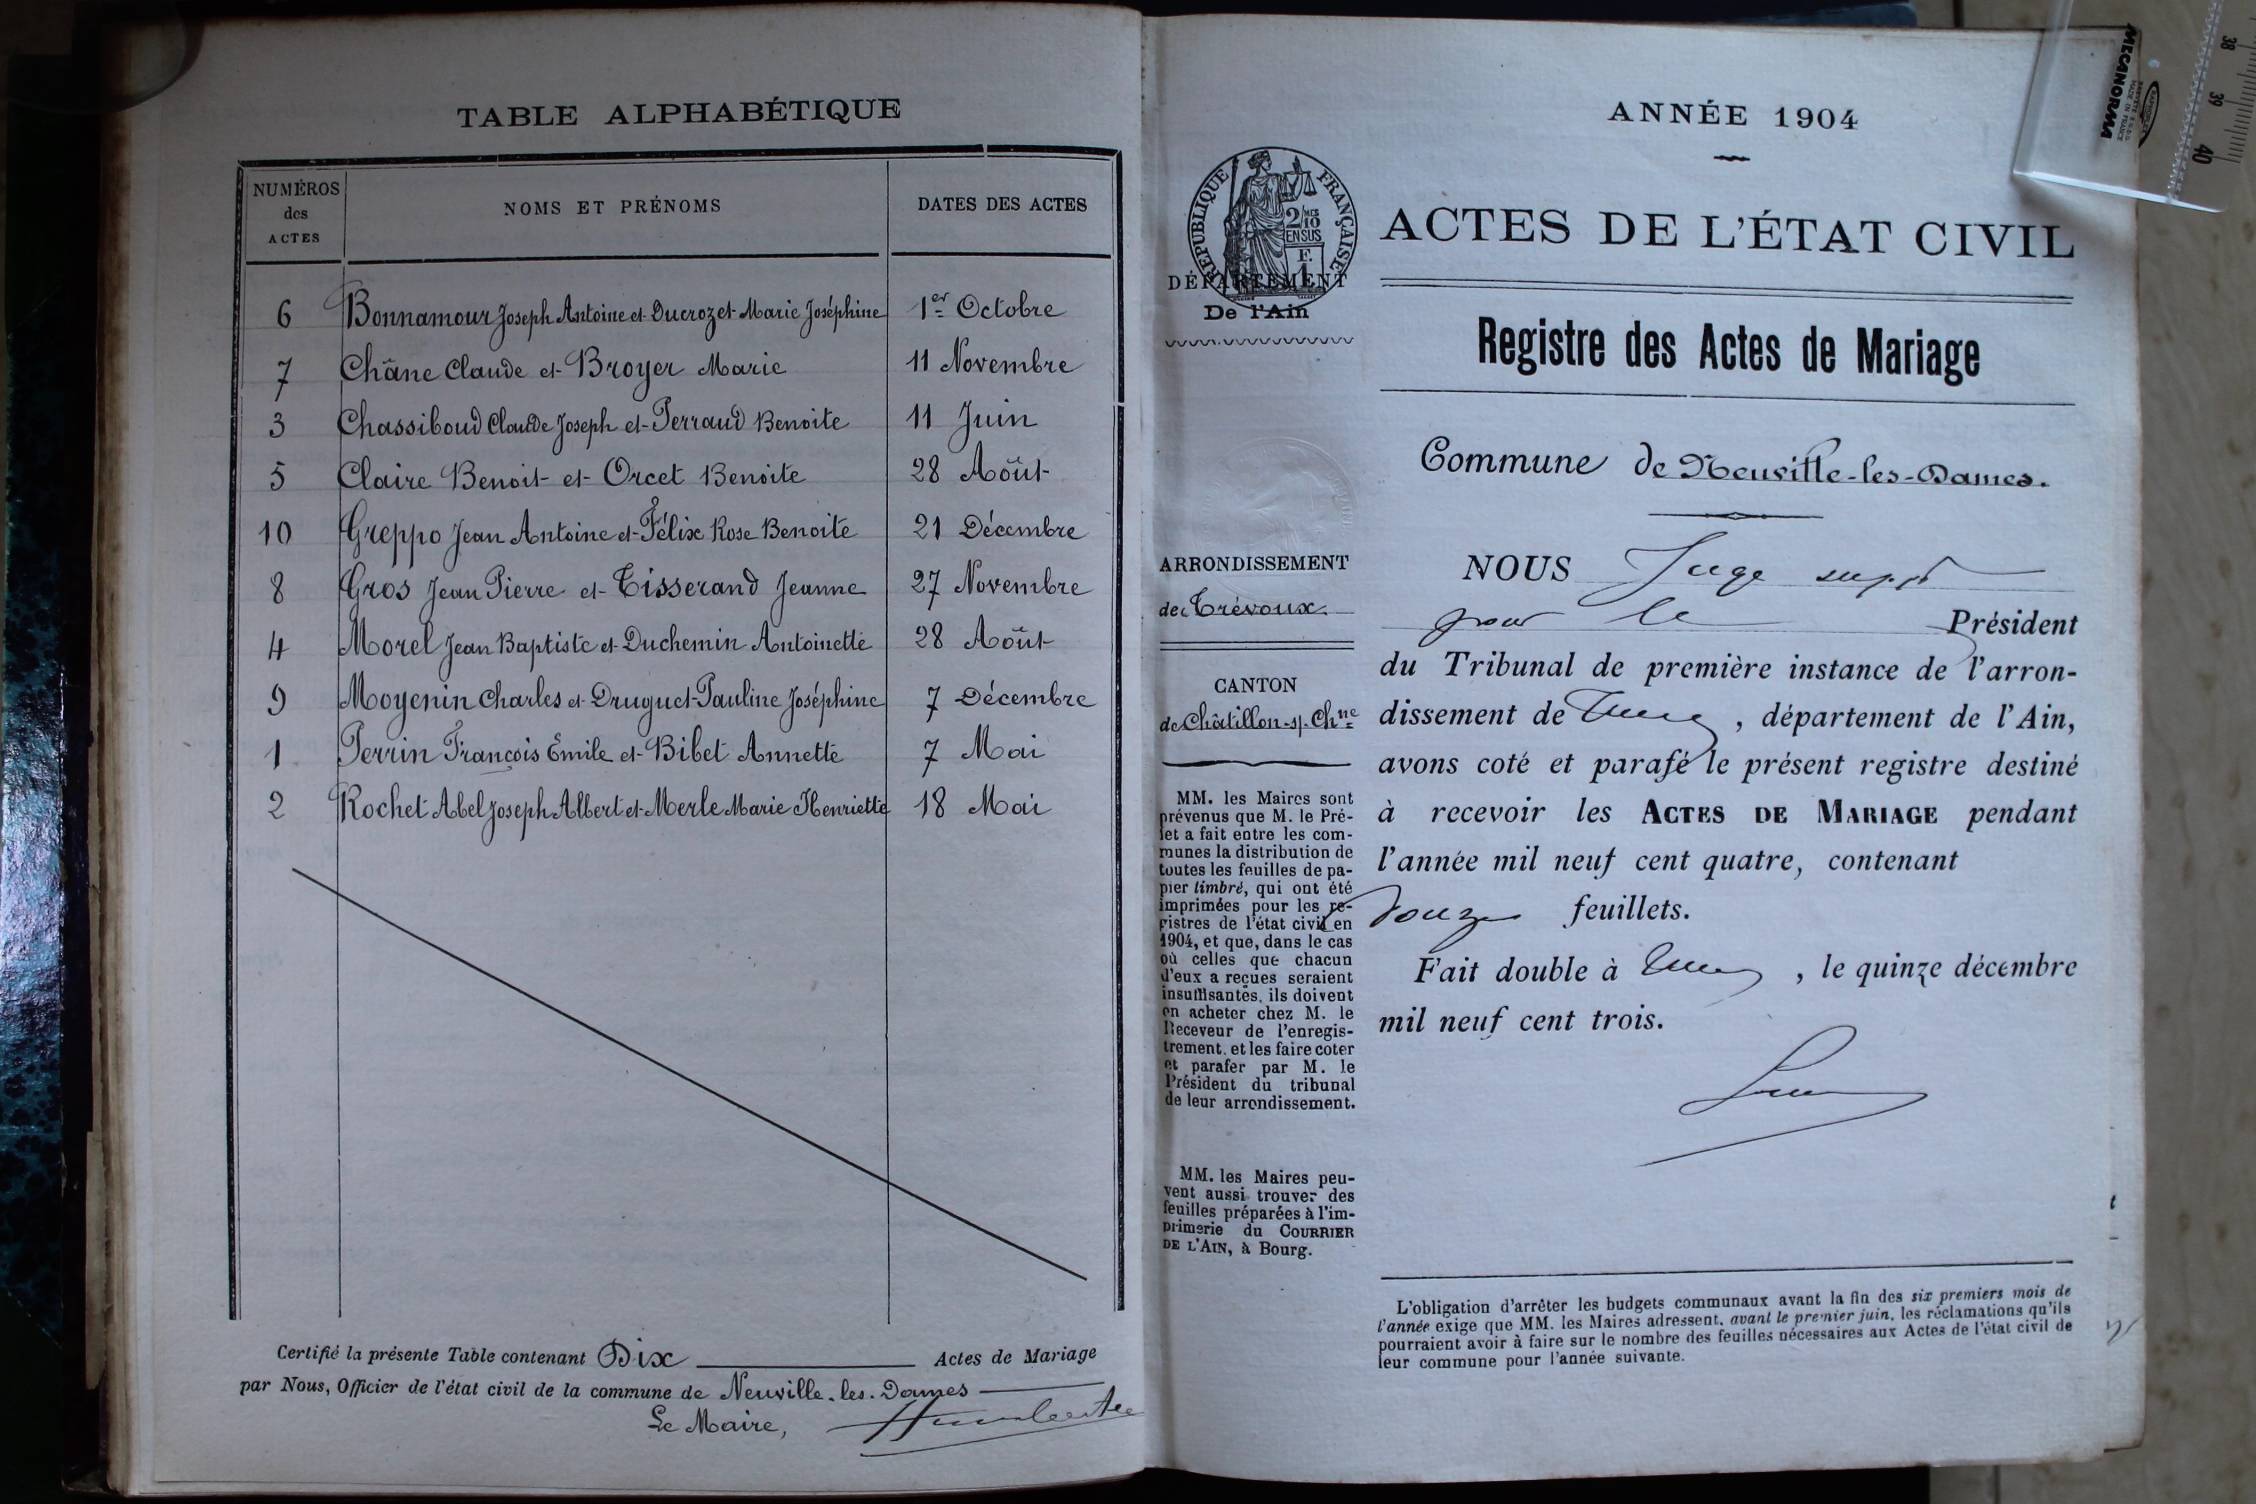 TABLE ALPHABÉTIQUE
NUMÉROS des ACTES
NOMS ET PRÉNOMS
DATES DES ACTES
6 Bonnamour Joseph Antoine et Ducrozet Marie Joséphine 1er Octobre
7 Châne Claude et Broyer Marie 11 Novembre
3 Chassiboud Claude Joseph et Perraud Benoite 11 Juin
5 Claire Benoit et Orcet Benoite 28 Août
10 Greppo Jean Antoine et Félix Rose Benoite 21 Décembre
8 Gros Jean Pierre et Tisserand Jeanne 27 Novembre
4 Morel Jean Baptiste et Duchemin Antoinette 28 Août
9 Moyenin Charles et Druguet Pauline Joséphine 7 Décembre
1 Perrin François Émile et Bibet Annette 7 Mai
2 Rochet Abel Joseph Albert et Merle Marie Henriette 18 Mai
Certifié la présente Table contenant Dix Actes de Mariage
par Nous, Officier de l'état civil de la commune de Neuville-les-Dames
Le Maire,
RÉPUBLIQUE FRANÇAISE
2/10 MES
EN SUS
1 F.
DÉPARTEMENT
De l'Ain
ARRONDISSEMENT
de Trévoux
CANTON
de Châtillon-s/-Chne
MM. les Maires sont
prévenus que M. le Pré-
fet a fait entre les com-
munes la distribution de
toutes les feuilles de pa-
pier timbré, qui ont été
imprimées pour les re-
gistres de l'état civil en
1904, et que, dans le cas
où celles que chacun
d'eux a reçues seraient
insuffisantes, ils doivent
en acheter chez M. le
Receveur de l'enregis-
trement, et les faire coter
et parafer par M. le
Président du tribunal
de leur arrondissement.
MM. les Maires peu-
vent aussi trouver des
feuilles préparées à l'im-
primerie du COURRIER
DE L'AIN, à Bourg.
ANNÉE 1904
ACTES DE L'ÉTAT CIVIL
Registre des Actes de Mariage
Commune de Neuville-les-Dames.
NOUS Juge suppt
pour le Président
du Tribunal de première instance de l'arron-
dissement de Trévoux, département de l'Ain,
avons coté et parafé le présent registre destiné
à recevoir les ACTES DE MARIAGE pendant
l'année mil neuf cent quatre, contenant
douze feuillets.
Fait double à Trévoux, le quinze décembre
mil neuf cent trois.
L'obligation d'arrêter les budgets communaux avant la fin des six premiers mois de
l'année exige que MM. les Maires adressent, avant le premier juin, les réclamations qu'ils
pourraient avoir à faire sur le nombre des feuilles nécessaires aux Actes de l'état civil de
leur commune pour l'année suivante.
MECANORMA
38
39
40